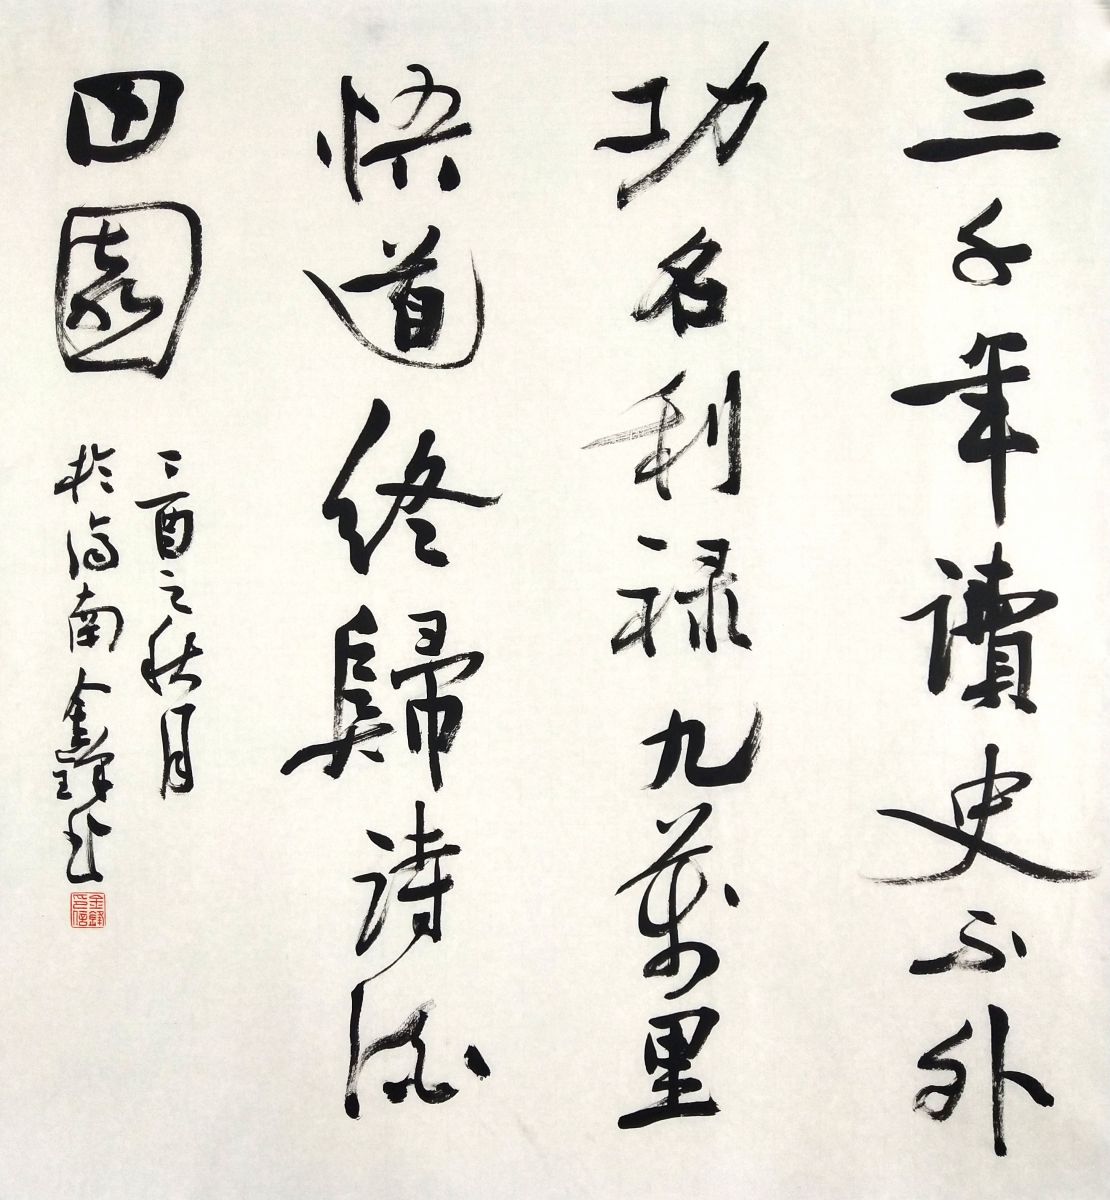 三千年讀史不外
功名利祿九萬里
悟道終歸詩酒
田園
丁酉之秋月
於濟南金